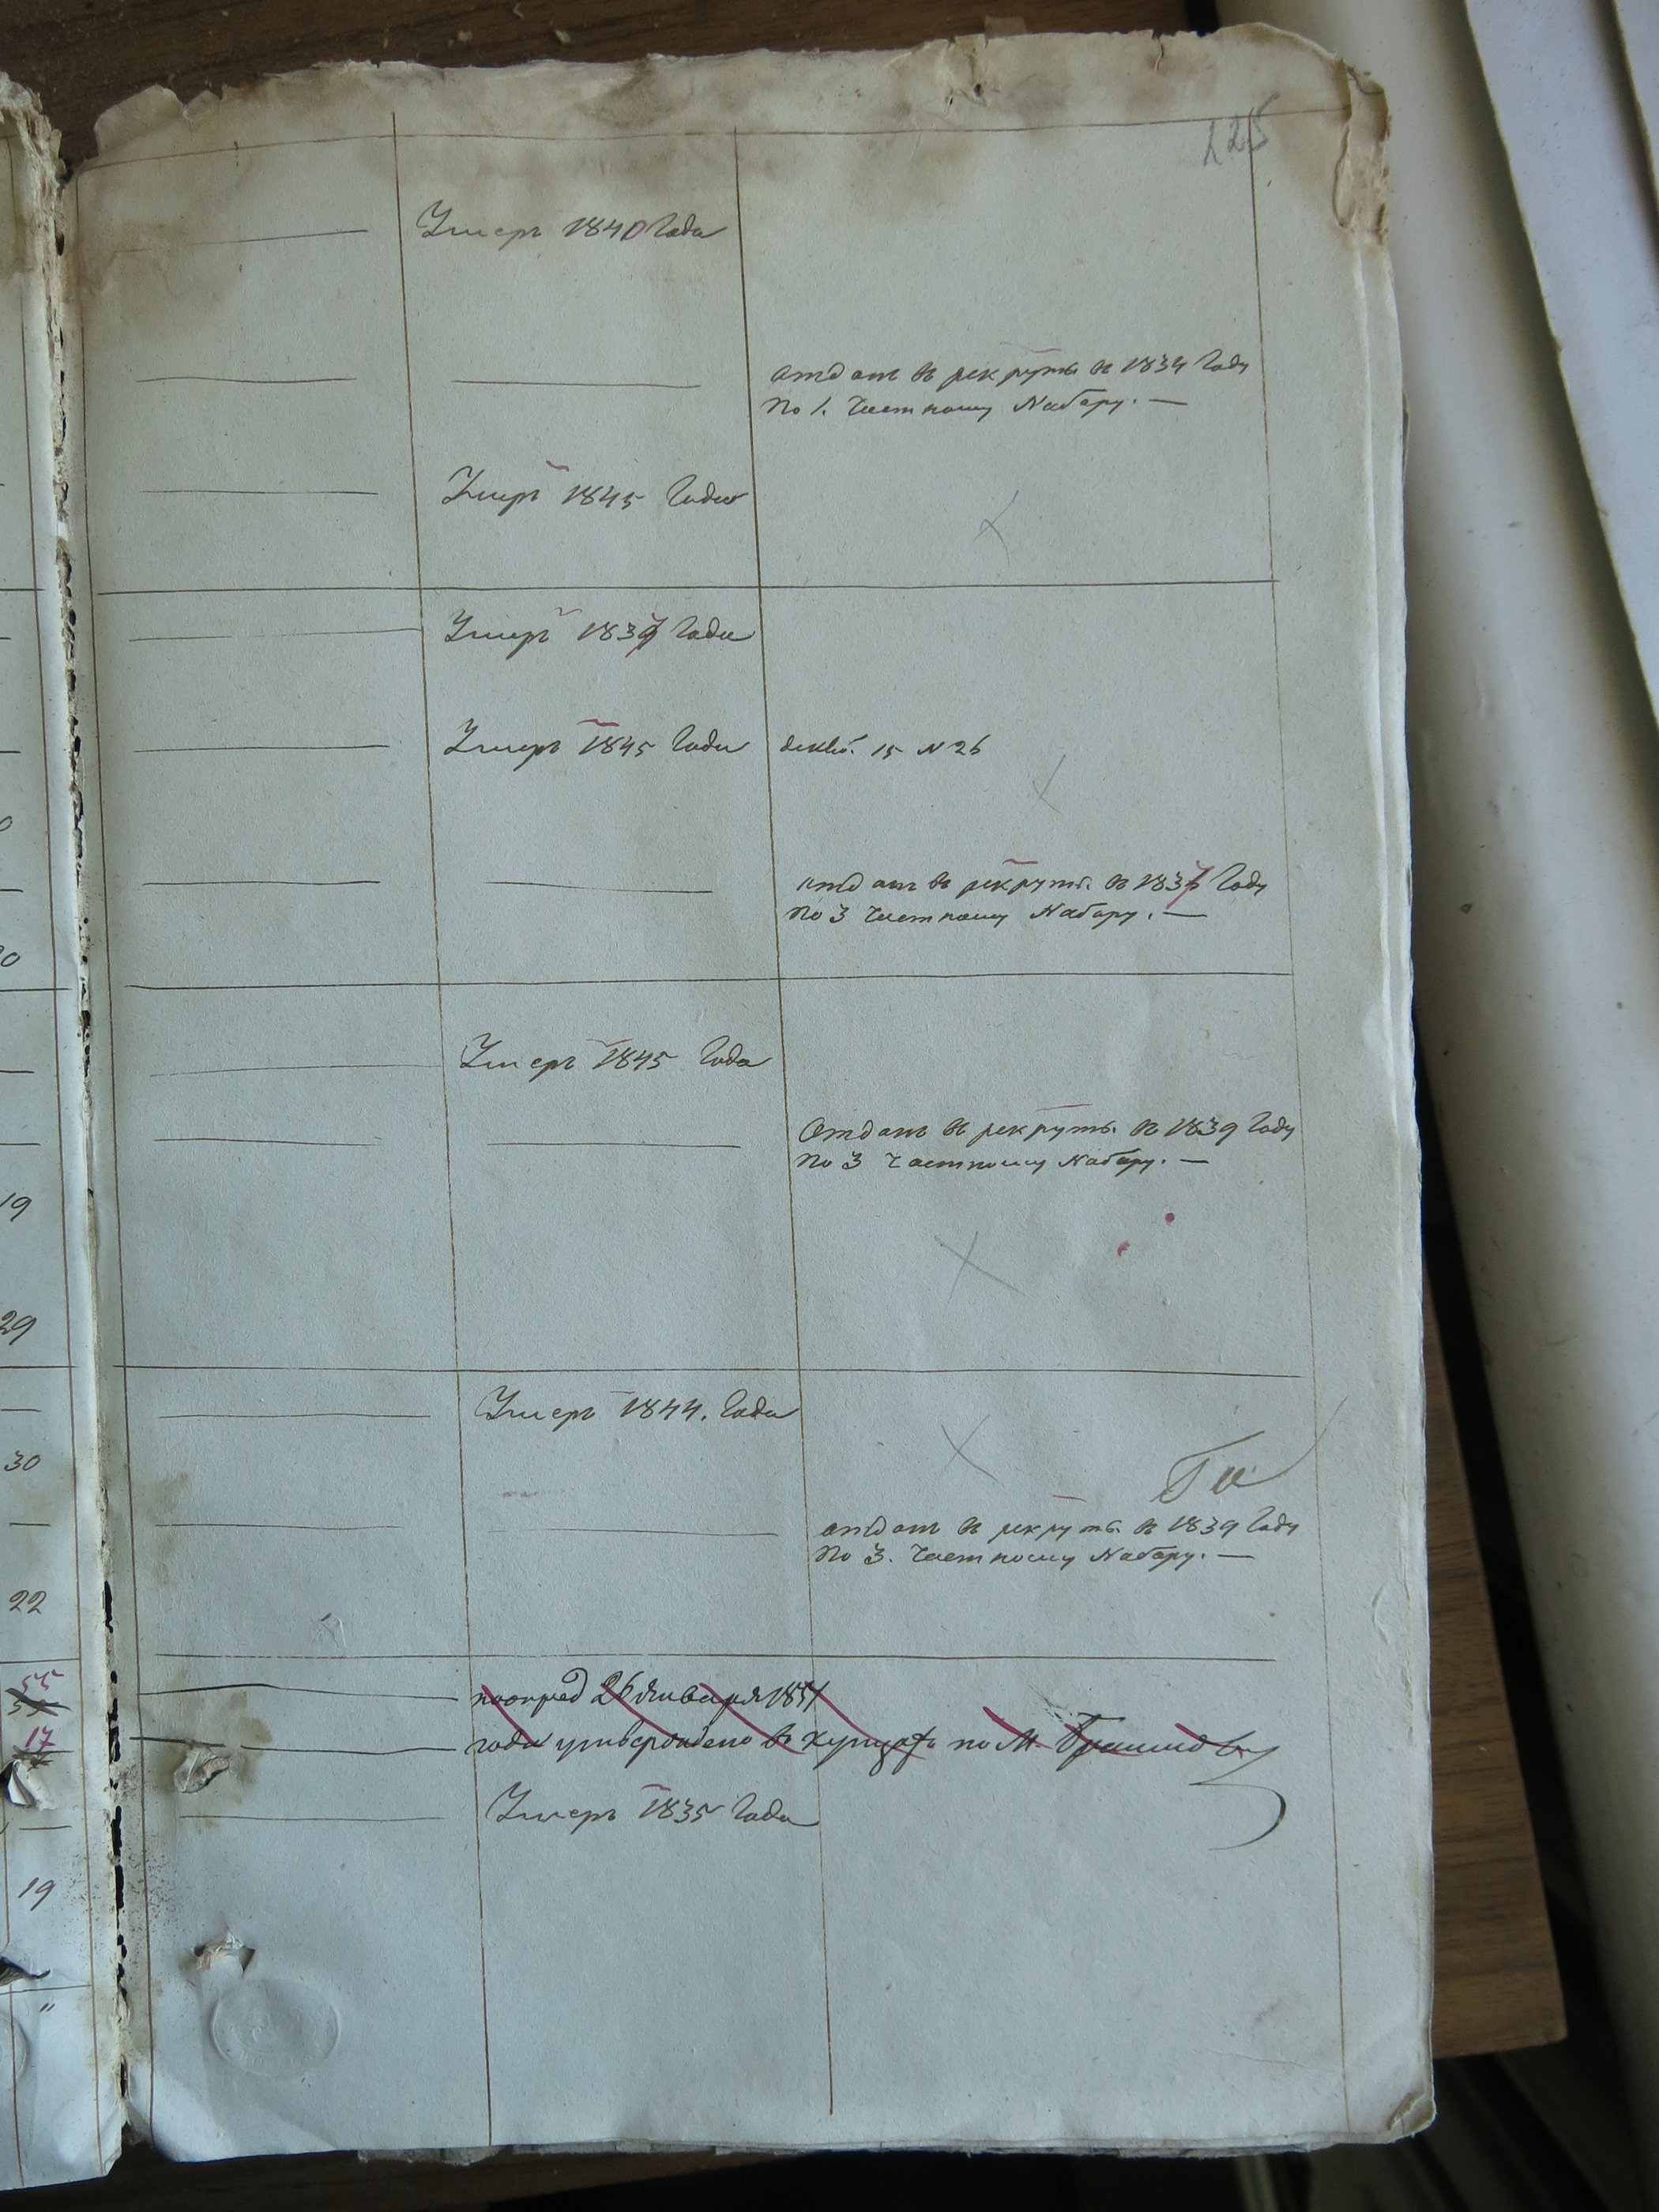 125
Умеръ 1840 Года
отданъ въ рекруты въ 1834 Году
по 1. Частному Набору. —
Умеръ 1845 Года
Умеръ 1837 Года
Умеръ 1845 Года
15 N 26
отданъ въ рекруты въ 1837 Году
по 3 Частному Набору. —
Умеръ 1845 Года
Отданъ въ рекруты въ 1839 Году
по 3 Частному Набору. —
19
29
Умеръ 1844. Года
30
отданъ въ рекруты въ 1839 Году
по 3. Частному Набору. —
22
55
по опред 26 января 1851
17
года утверждено въ по М.
Умеръ 1835 Года
19